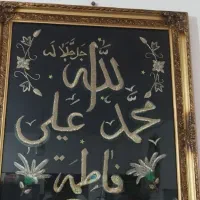 الله جل جلاله
محمد علي
فاطمة